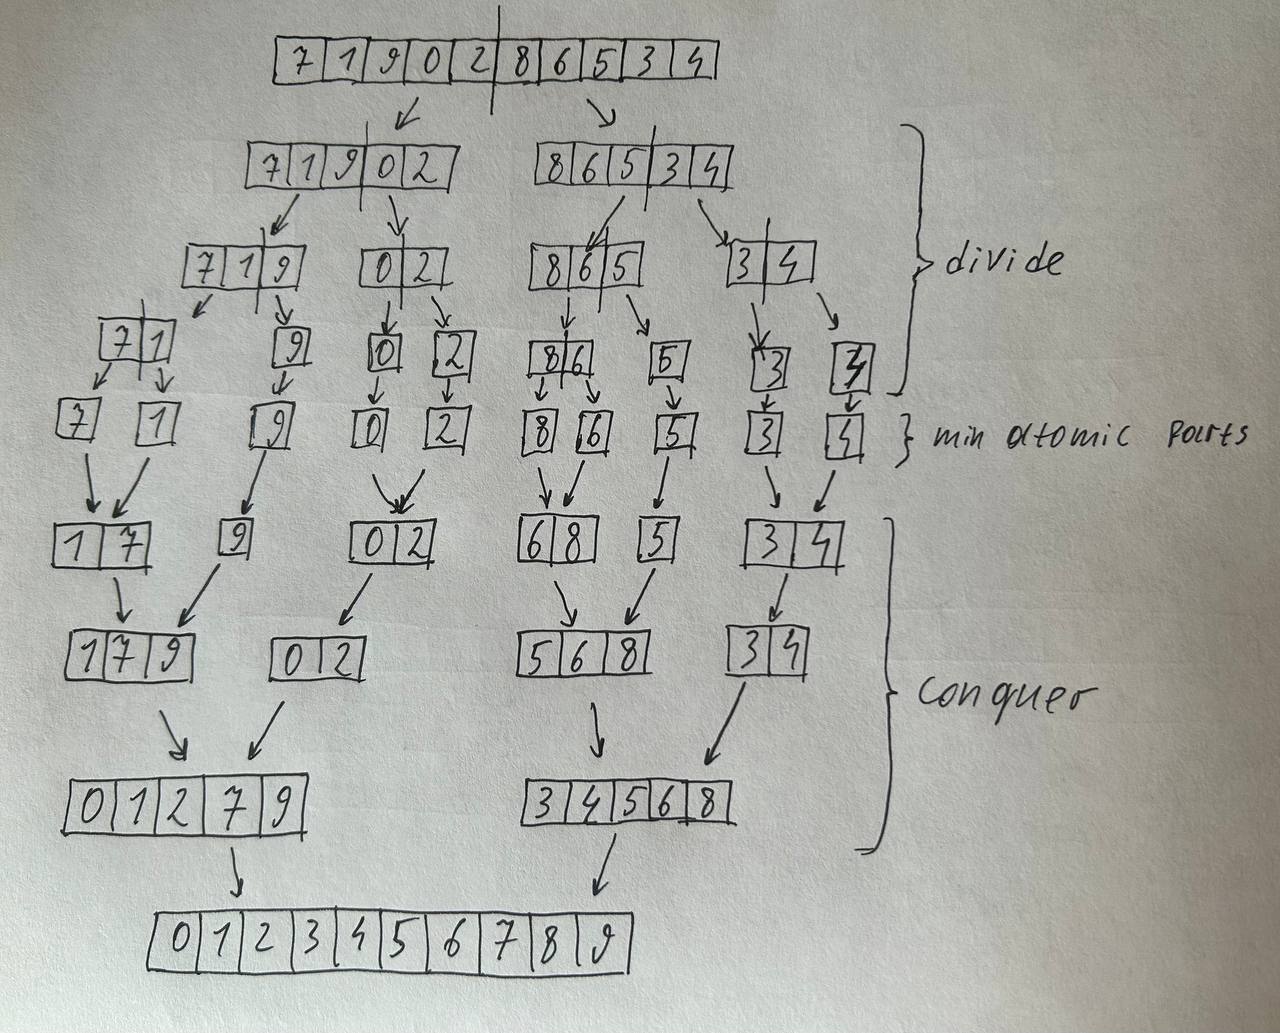 7 1 9 0 2 8 6 5 3 4
7 1 9 0 2 8 6 5 3 4
7 1 9 0 2 8 6 5 3 4
divide
7 1 9 0 2 8 6 5 3 4
7 1 9 0 2 8 6 5 3 4
min atomic parts
1 7 9 0 2 6 8 5 3 4
1 7 9 0 2 5 6 8 3 4
conquer
0 1 2 7 9 3 4 5 6 8
0 1 2 3 4 5 6 7 8 9